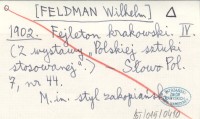 [FELDMAN Wilhelm] Δ
1902. Fejleton krakowski IV.
(Z wystawy „Polskiej sztuki
stosowanej”.) Słowo Pol.
7, nr 44.
M. in. styl zakopiański